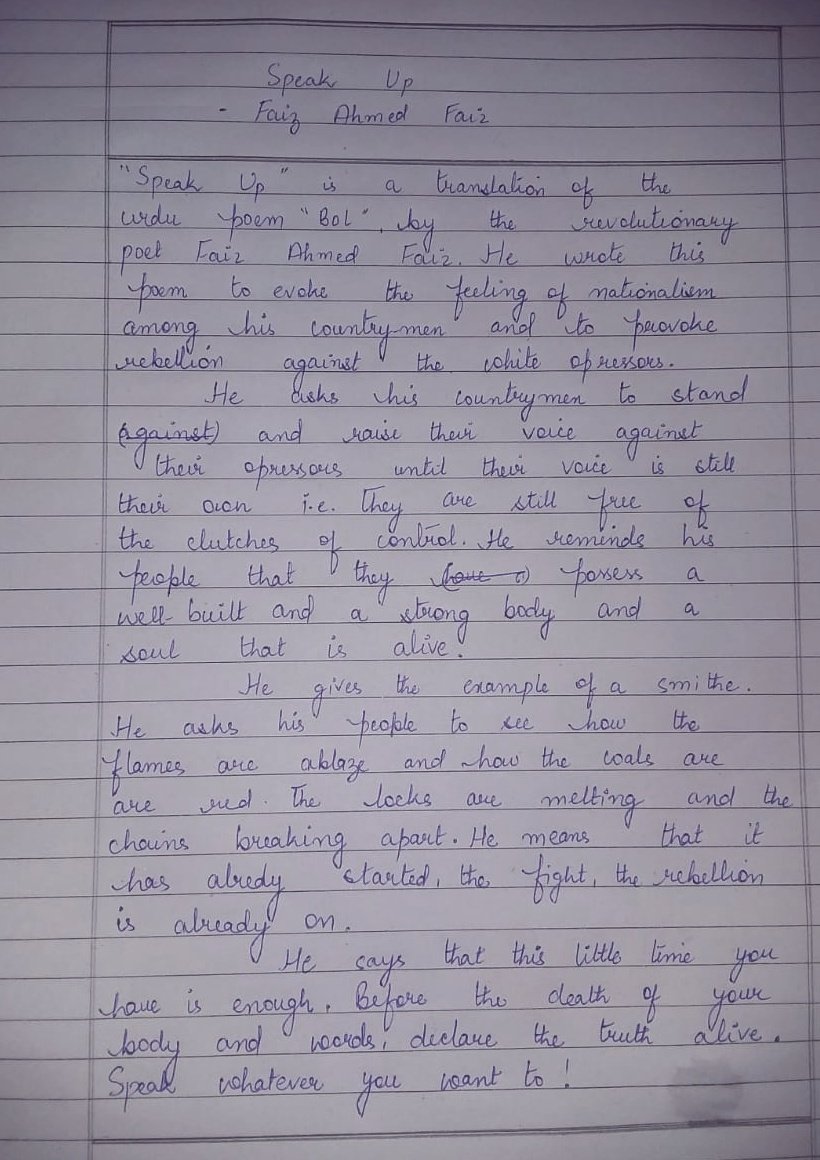 Speak Up
- Faiz Ahmed Faiz
"Speak Up" is a translation of the
urdu poem "Bol", by the revolutionary
poet Faiz Ahmed Faiz. He wrote this
poem to evoke the feeling of nationalism
among his countrymen and to provoke
rebellion against the white opressors.
He asks his countrymen to stand
(against) and raise their voice against
their opressors until their voice is still
their own i.e. They are still free of
the clutches of control. He reminds his
people that they (have a) possess a
well-built and a strong body and a
soul that is alive.
He gives the example of a smithe.
He asks his people to see how the
flames are ablaze and how the coals are
are red. The locks are melting and the
chains breaking apart. He means that it
has alredy started, the fight, the rebellion
is already on.
He says that this little time you
have is enough. Before the death of your
body and words, declare the truth alive.
Speak whatever you want to!